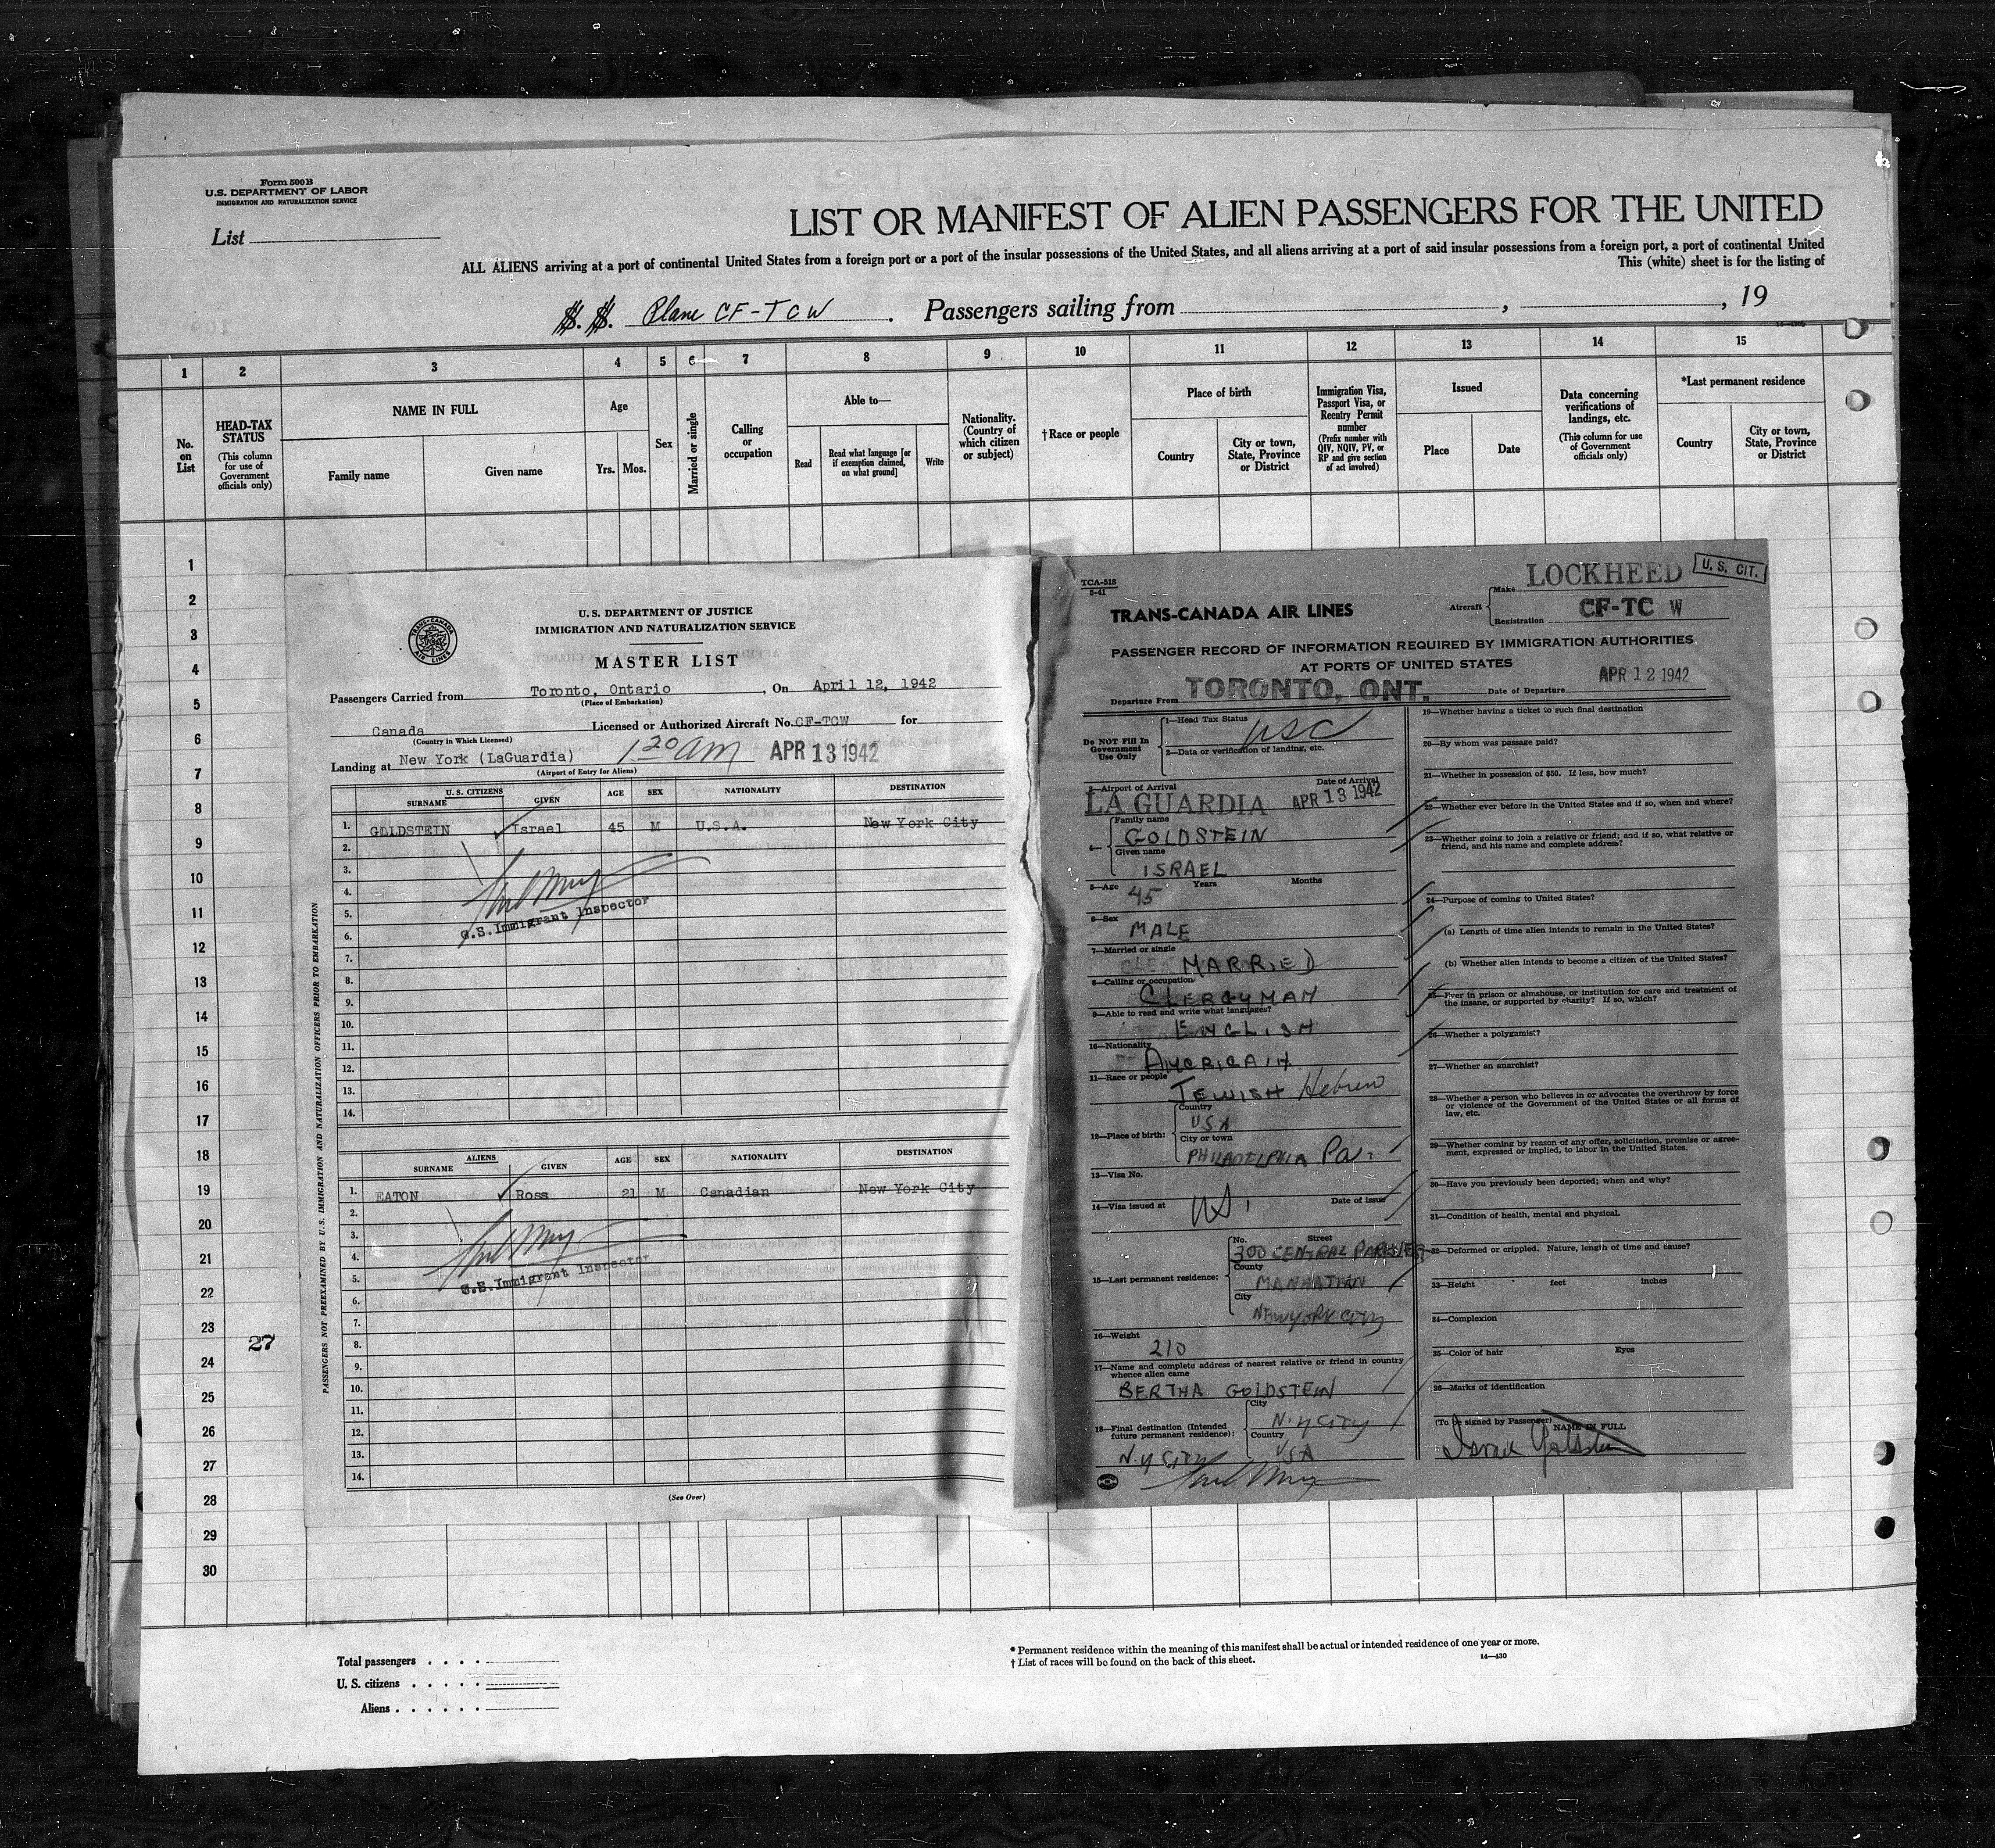 Form 500B
U.S. DEPARTMENT OF LABOR
IMMIGRATION AND NATURALIZATION SERVICE
List
LIST OR MANIFEST OF ALIEN PASSENGERS FOR THE UNITED
ALL ALIENS arriving at a port of continental United States from a foreign port or a port of the insular possessions of the United States, and all aliens arriving at a port of said insular possessions from a foreign port, a port of continental United
This (white) sheet is for the listing of
S. S. Plane CF-TCW . Passengers sailing from , , 19
1 2 3 4 5 6 7 8 9 10 11 12 13 14 15
No. on List
HEAD-TAX STATUS
(This column for use of Government officials only)
NAME IN FULL
Family name
Given name
Age
Yrs. Mos.
Sex
Married or single
Calling or occupation
Able to—
Read
Read what language [or if exemption claimed, on what ground]
Write
Nationality. (Country of which citizen or subject)
†Race or people
Place of birth
Country
City or town, State, Province or District
Immigration Visa, Passport Visa, or Reentry Permit number
(Prefix number with QIV, NQIV, PV, or RP and give section of act involved)
Issued
Place
Date
Data concerning verifications of landings, etc.
(This column for use of Government officials only)
*Last permanent residence
Country
City or town, State, Province or District
1
2
3
4
5
6
7
8
9
10
11
12
13
14
15
16
17
18
19
20
21
22
23
24
25
26
27
28
29
30
27
TRANS-CANADA AIR LINES
U. S. DEPARTMENT OF JUSTICE
IMMIGRATION AND NATURALIZATION SERVICE
MASTER LIST
Passengers Carried from Toronto, Ontario, On April 12, 1942
(Place of Embarkation)
Canada Licensed or Authorized Aircraft No. CF-TCW for
(Country in Which Licensed)
Landing at New York (LaGuardia) 1 20 am APR 13 1942
(Airport of Entry for Aliens)
U.S. CITIZENS
SURNAME GIVEN AGE SEX NATIONALITY DESTINATION
1. GOLDSTEIN Israel 45 M U.S.A. New York City
2.
3.
4.
5.
U.S. Immigrant Inspector
6.
7.
8.
9.
10.
11.
12.
13.
14.
ALIENS
SURNAME GIVEN AGE SEX NATIONALITY DESTINATION
1. EATON Ross 21 M Canadian New York City
2.
3.
4.
5.
U.S. Immigrant Inspector
6.
7.
8.
9.
10.
11.
12.
13.
14.
(See Over)
PASSENGERS NOT PREEXAMINED BY U. S. IMMIGRATION AND NATURALIZATION OFFICERS PRIOR TO EMBARKATION
TCA-518
5-41
TRANS-CANADA AIR LINES
Aircraft
Make LOCKHEED
U. S. CIT.
Registration CF-TC W
PASSENGER RECORD OF INFORMATION REQUIRED BY IMMIGRATION AUTHORITIES
AT PORTS OF UNITED STATES
Departure From TORONTO, ONT. Date of Departure APR 12 1942
Do NOT Fill In Government Use Only
1—Head Tax Status USC
2—Data or verification of landing, etc.
3—Airport of Arrival Date of Arrival
LA GUARDIA APR 13 1942
4—
Family name
GOLDSTEIN
Given name
ISRAEL
5—Age Years Months
45
6—Sex
MALE
7—Married or single
MARRIED
8—Calling or occupation
CLERGYMAN
9—Able to read and write what languages?
ENGLISH
10—Nationality
AMERICAN
11—Race or people
JEWISH Hebrew
12—Place of birth:
Country
USA
City or town
PHILADELPHIA Pa.
13—Visa No.
14—Visa issued at Date of issue
15—Last permanent residence:
No. Street
300 CENTRAL PARK WEST
County
MANHATTAN
City
NEW YORK CITY
16—Weight
210
17—Name and complete address of nearest relative or friend in country whence alien came
BERTHA GOLDSTEIN
18—Final destination (Intended future permanent residence):
City
N.Y CITY
Country
USA
N.Y CITY
19—Whether having a ticket to such final destination
20—By whom was passage paid?
21—Whether in possession of $50. If less, how much?
22—Whether ever before in the United States and if so, when and where?
23—Whether going to join a relative or friend; and if so, what relative or friend, and his name and complete address?
24—Purpose of coming to United States?
(a) Length of time alien intends to remain in the United States?
(b) Whether alien intends to become a citizen of the United States?
25—Ever in prison or almshouse, or institution for care and treatment of the insane, or supported by charity? If so, which?
26—Whether a polygamist?
27—Whether an anarchist?
28—Whether a person who believes in or advocates the overthrow by force or violence of the Government of the United States or all forms of law, etc.
29—Whether coming by reason of any offer, solicitation, promise or agreement, expressed or implied, to labor in the United States.
30—Have you previously been deported; when and why?
31—Condition of health, mental and physical.
32—Deformed or crippled. Nature, length of time and cause?
33—Height feet inches
34—Complexion
35—Color of hair Eyes
36—Marks of identification
(To be signed by Passenger) NAME IN FULL
Israel Goldstein
Total passengers . . . .
U. S. citizens . . . . .
Aliens . . . . . .
* Permanent residence within the meaning of this manifest shall be actual or intended residence of one year or more.
† List of races will be found on the back of this sheet.
14—430